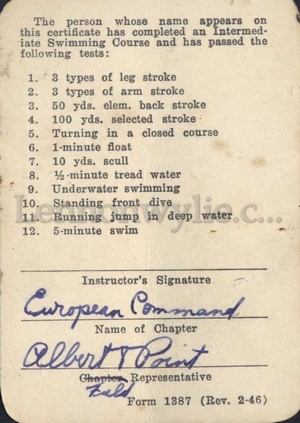 The person whose name appears on
this certificate has completed an Intermed-
iate Swimming Course and has passed the
following tests:
1. 3 types of leg stroke
2. 3 types of arm stroke
3. 50 yds. elem. back stroke
4. 100 yds. selected stroke
5. Turning in a closed course
6. 1-minute float
7. 10 yds. scull
8. ½-minute tread water
9. Underwater swimming
10. Standing front dive
11. Running jump in deep water
12. 5-minute swim
Instructor's Signature
European Command
Name of Chapter
Albert T Point
Chapter Representative
Field
Form 1387 (Rev. 2-46)